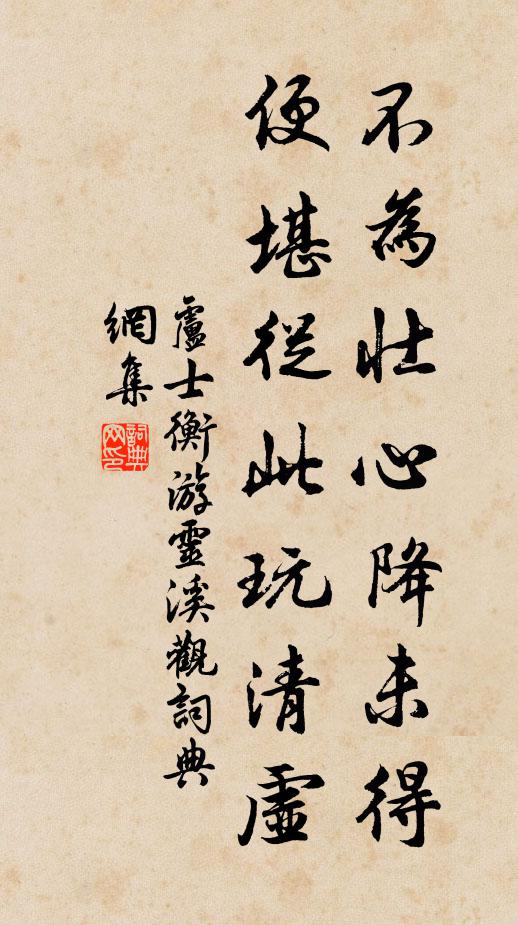 不為壯心降未得
便堪從此玩清虛
盧士衡游靈溪觀詞典
網集
詞典網印